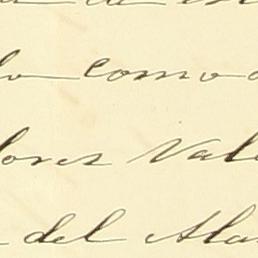 lo como
lores Val
del Ala